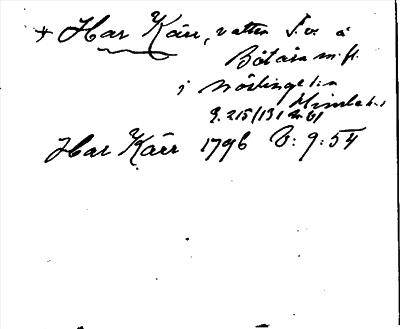 + Har Kärr, vatten S.v. å
Båtåsa m. fl.
i Nösslinge sn
Himle hd
9. 215/131 m 61
Har Kärr 1796 B: 9: 54